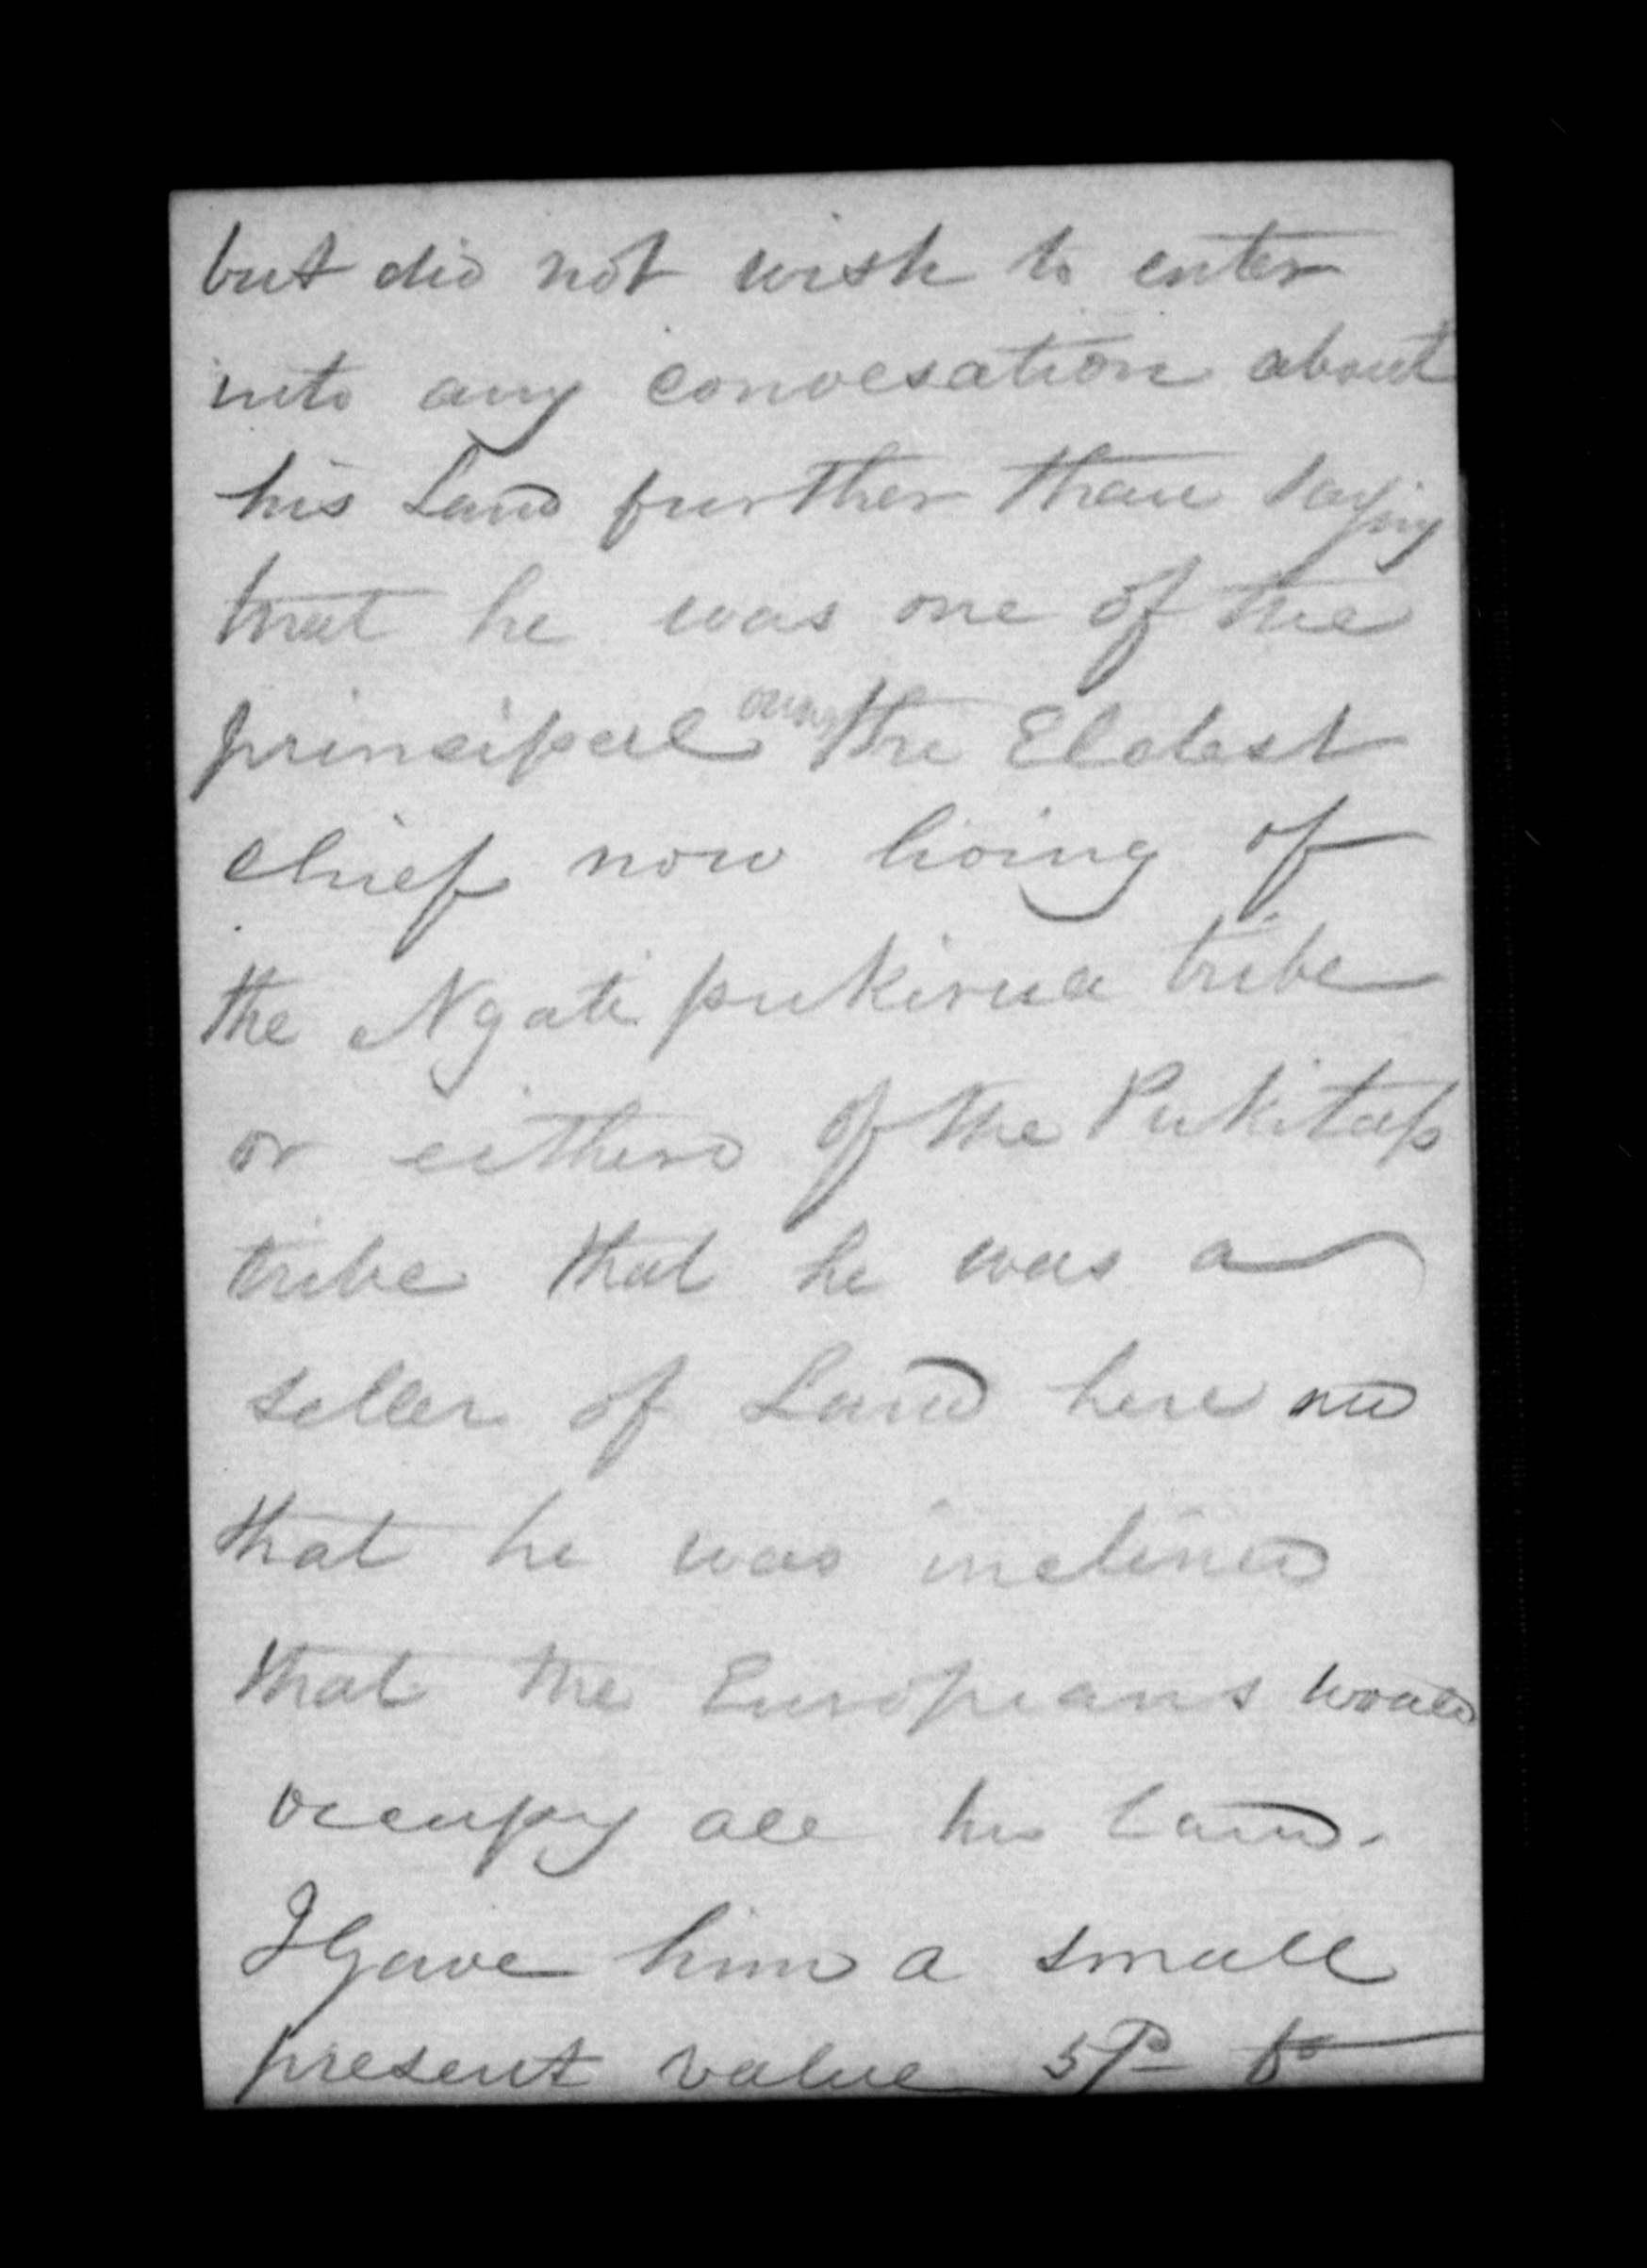 but did not wish to enter
into any convesation about
his Land further than saying
that he was one of the
principal the Eldest
chief now living of
the Ngati pukirua tribe
or eithers of the Pukitap
tribe that he was a
seller of Land here
that he was inclined
that the Europeans would
occupy all his land.
I Gave him a small
present value to